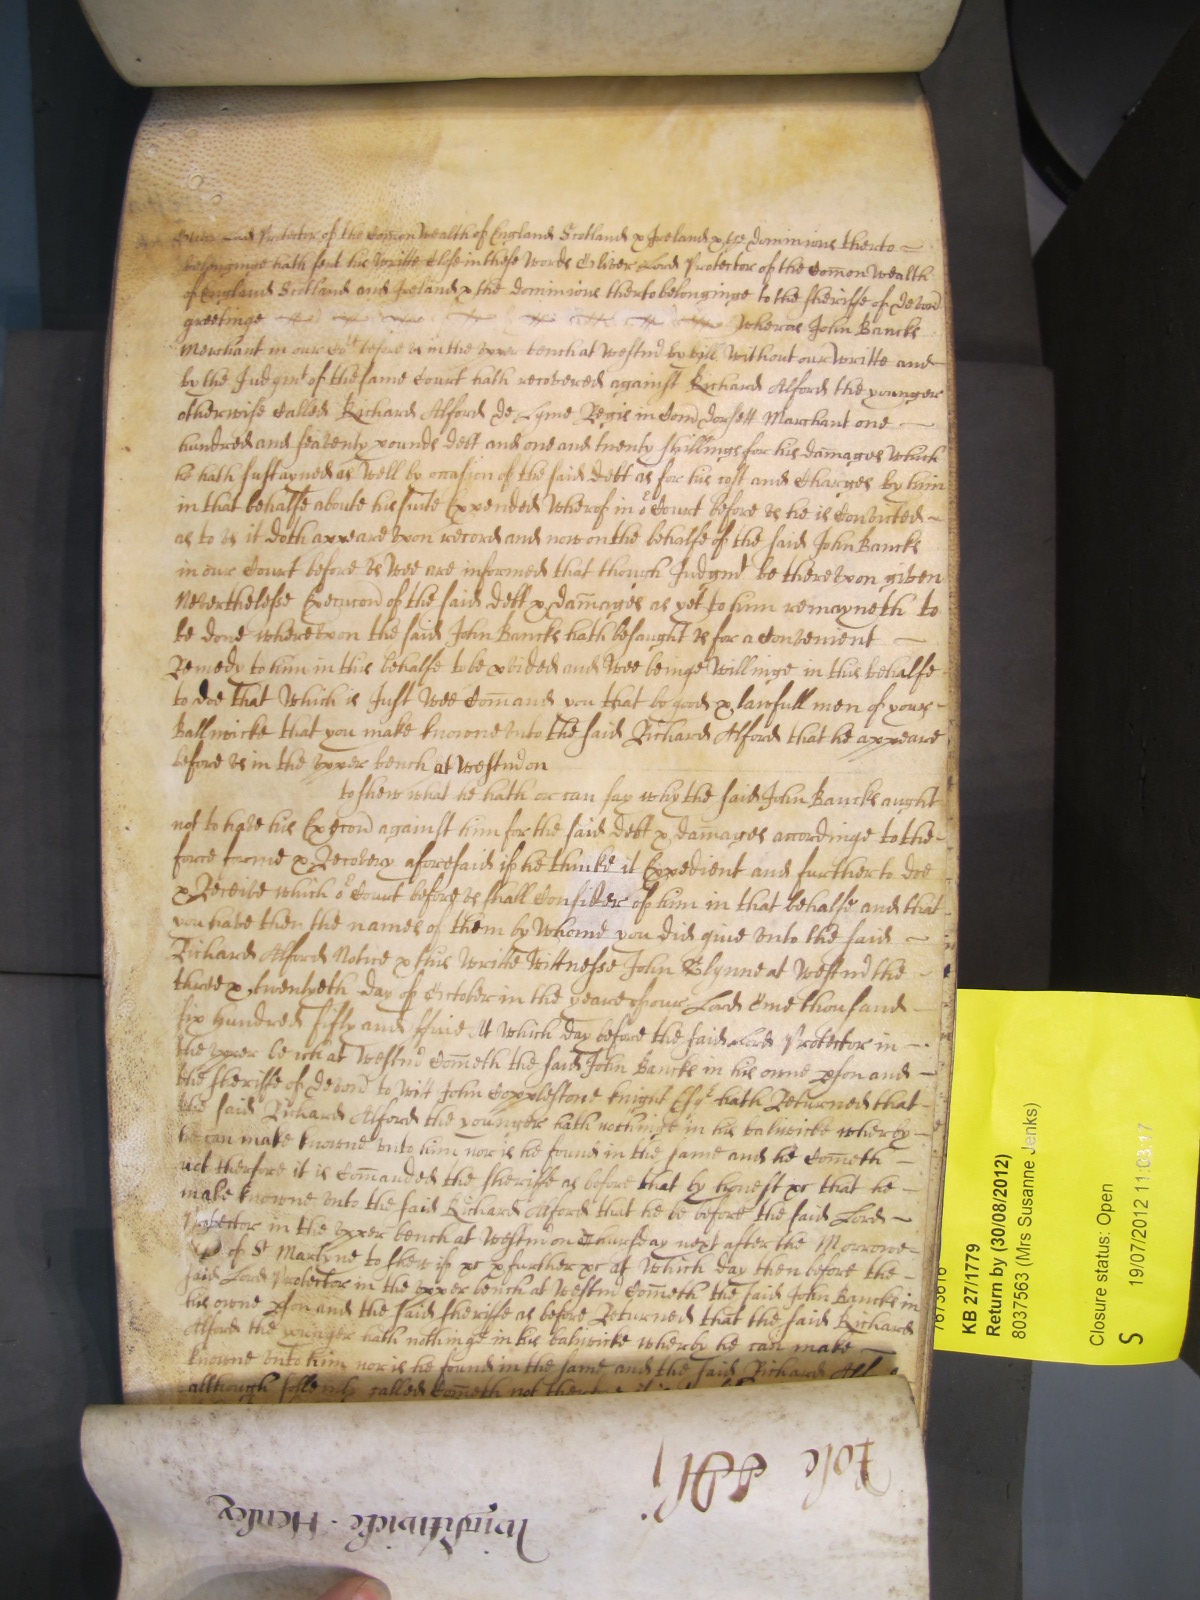 Oliver Lord Protector of the Com̄on Wealth of England Scotland & Ireland & the dominions therto
belonginge hath sent his Writte Close in these words Oliver Lord Protector of the Com̄on Wealth
of England Scotland and Ireland & the dominions therto belonginge to the sheriffe of Devon̄
greetinge Wheras John Bancks
Merchant in our Cort before vs in the vpper bench at Westm̄ by bill Without our Writte and
by the Judgmt of the same Court hath recovered against Richard Alford the younger
otherwise Called Richard Alford de Lyme Regis in Com̄ Dorsett Marchant one
hundred and seaventy pounds debt and one and twenty shillings for his damages Which
he hath sustayned as Well by occasion of the said debt as for his cost and Charges by him
in that behalfe aboute his suite Expended Wherof in or Court before vs he is Convicted
as to vs it doth appeare vpon record and now on the behalfe of the said John Bancks
in our Court before vs Wee are informed that though Judgmt be therevpon given
Neverthelesse Execucon̄ of the said debt & dam̄ages as yet to him remayneth to
be done wherevpon the said John Bancks hath besaught vs for a Convenient
Remedy to him in this behalfe to be pvided and Wee beinge Willinge in this behalfe
to doe that Which is Just Wee Com̄and you that by good & lawfull men of your
Balliwicke that you make knowne vnto the said Richard Alford that he appeare
before vs in the vpper bench at Westm̄ on
to shew what he hath or can say why the said John Bancks aught
not to have his Execon̄ against him for the said debt & dam̄ages accordinge to the
force forme & Recovery aforesaid if he thinke it Expedient and further to doe
& Receive which or Court before vs shall Consider of him in that behalfe and that
you have then the names of them by Whome you did give vnto the said
Richard Alford Notice & this Writte Wittnesse John Glynne at Westm̄ the
three & twentyeth day of October in the yeare of our Lord One thousand
six hundred fifty and ffive At Which day before the said Lord Protector in
the vpper bench at Westm̄ Com̄eth the said John Bancks in his owne pson and
the sheriffe of Devon̄ to Witt John Copplestone knight Esqr hath Returned that
the said Richard Alford the younger hath nothinge in his baliwicke wherby
he can make knowne vnto him nor is he found in the same and he Com̄eth
not therfore it is Com̄anded the sheriffe as before that by honest &c that he
make knowne vnto the said Richard Alford that he be before the said Lord
Protector in the vpper bench at Westm̄ on Thursday next after the Morrowe
of St Martyne to shew if &c & further &c at Which day then before the
said Lord Protector in the vpper bench at Westm̄ Com̄eth the said John Bancks in
his owne pson and the said sheriffe as before Returned that the said Richard
Alford the younger hath nothinge in his baliwicke wherby he can make
knowne vnto him nor is he found in the same and the said Richard
although sollemly called Com̄eth not
KB 27/1779
Return by (30/08/2012)
8037563 (Mrs Susanne Jenks)
Closure status: Open
S 19/07/2012 11:03:17
Henley